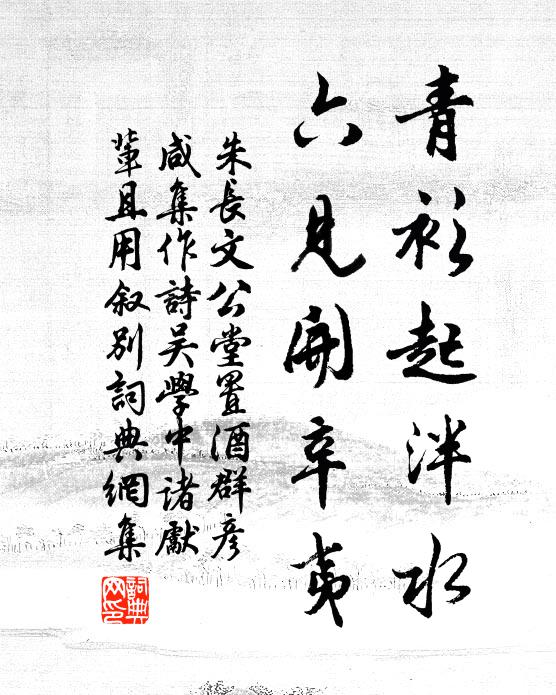 青衫起泮水
六見開辛夷
朱長文公堂置酒群彥
咸集作詩吴學中諸獻
輩且用叙别詞典網集
詞典
网印